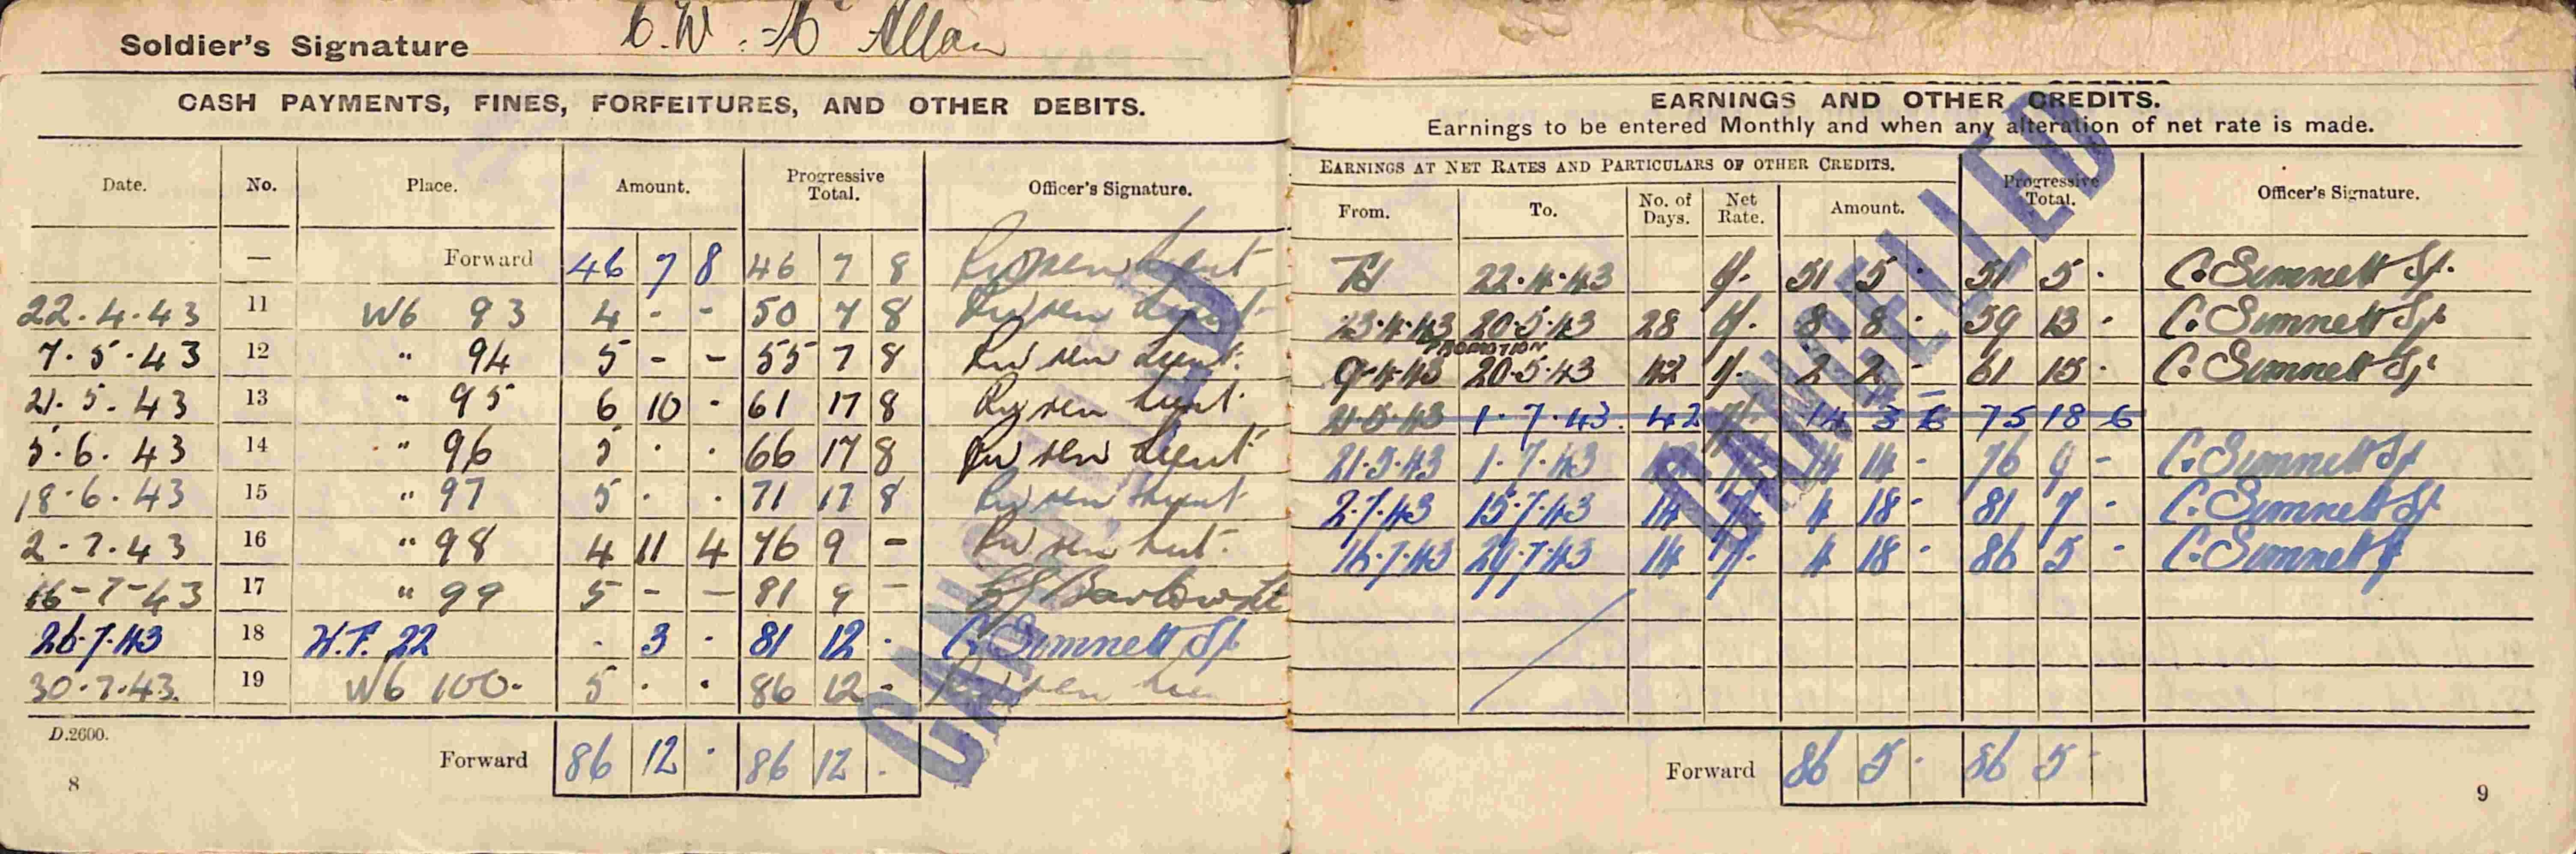 Soldier's Signature C.W. Mc Allan
CASH PAYMENTS, FINES, FORFEITURES, AND OTHER DEBITS.
Date. No. Place. Amount. Progressive Total. Officer's Signature.
— Forward 46 7 8 46 7 8 Lieut
22.4.43 11 W6 93 4 - - 50 7 8 Lieut
7.5.43 12 " 94 5 - - 55 7 8 Lieut.
21.5.43 13 " 95 6 10 . 61 17 8 Lieut.
5.6.43 14 " 96 5 . . 66 17 8 Lieut
18.6.43 15 " 97 5 . . 71 17 8 Lieut
2-7.43 16 " 98 4 11 4 76 9 - Lieut.
16-7-43 17 " 99 5 - - 81 9 -
26.7.43 18 22 . 3 . 81 12 . C. Simnett
30.7.43. 19 W6 100. 5 . . 86 12 -
D.2600.
Forward 86 12 . 86 12 .
8
CANCELLED
EARNINGS AND OTHER CREDITS.
EARNINGS AND OTHER CREDITS.
Earnings to be entered Monthly and when any alteration of net rate is made.
EARNINGS AT NET RATES AND PARTICULARS OF OTHER CREDITS. Progressive Total. Officer's Signature.
From. To. No. of Days. Net Rate. Amount.
22.4.43 51 5 . 51 5 . C. Simnett
23.4.43 20.5.43 28 8 8 . 59 13 . C. Simnett
PROMOTION
9.4.43 20.5.43 42 2 2 - 61 15 . C. Simnett
21.5.43 1.7.43. 42 14 3 6 75 18 6
21.5.43 1.7.43 14 14 - 76 9 - C. Simnett
2.7.43 15.7.43 14 7. 4 18 - 81 7 - C. Simnett
16.7.43 29.7.43 14 7. 4 18 - 86 5 - C. Simnett
Forward 86 5 . 86 5 -
9
CANCELLED